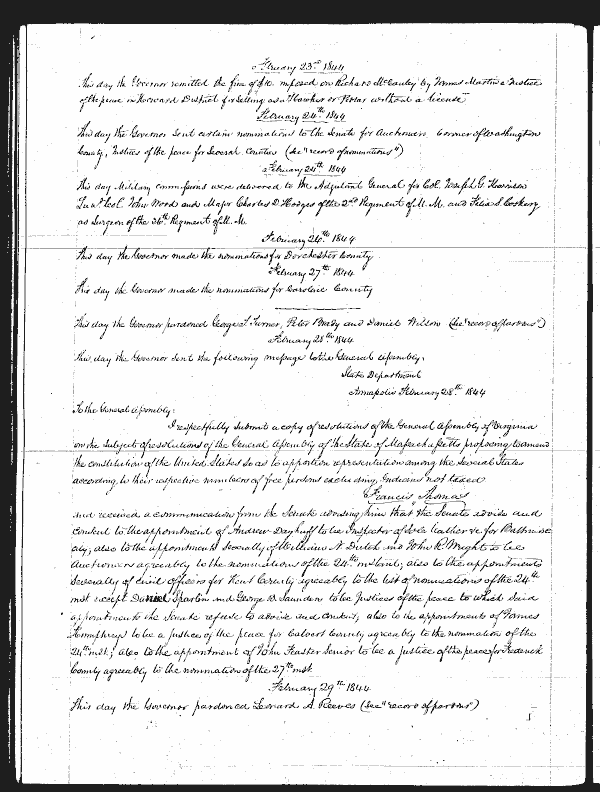 February 23rd 1844
This day the Governor remitted the fine of $16. imposed on Richard McCauley by Thomas Martin a Justice
of the peace in Howard District for selling as a Hawker or Pedlar without a license
February 24th 1844
This day the Governor sent certain nominations to the Senate for Auctioneers Coroner of Washington
County, Justices of the peace for Several Counties (See "record of nominations")
February 24th 1844
This day Military commissions were delivered to the Adjutant General for Col. Joseph G. Harrison
Lieut Col. John Wood and Major Charles D. Hodges of the 2nd Regiment of M. M. and
as Surgeon of the 36th Regiment of M. M.
February 26th 1844
This day the Governor made the nominations for Dorchester County
February 27th 1844
This day the Governor made the nominations for Caroline County
This day the Governor pardoned George T. Turner, Peter Brady and Daniel Wilson (See "record of pardons")
February 28th 1844
This day the Governor sent the following message to the General Assembly:
State Department
Annapolis February 28th 1844
To the General Assembly:
I respectfully submit a copy of resolutions of the General Assembly of Virginia
on the subject of resolutions of the General Assembly of the State of Massachusetts proposing to amend
the constitution of the United States so as to apportion representation among the Several States
according to their respective numbers of free persons excluding Indians not taxed
Francis Thomas
and received a communication from the Senate advising him that the Senate advise and
consent to the appointment of Andrew Dayhuff to be Inspector of Sole leather &c for Baltimore
city; also to the appointments severally of A. Dutch and John R. Wright to be
Auctioneers agreeably to the nominations of the 24th instant; also to the appointments
Severally of civil officers for Kent County agreeably to the list of nominations of the 24th
inst except Daniel Sparklin and George W. Saunders to be Justices of the peace to which said
appointments the Senate refuse to advise and consent; also to the appointment of James
Humphreys to be a justice of the peace for Calvert County agreeably to the nomination of the
24th inst; also to the appointment of John Keaster Senior to be a justice of the peace for Frederick
County agreeably to the nomination of the 27th inst
February 29th 1844
This day the Governor pardoned Leonard A. Reeves (See "record of pardons")